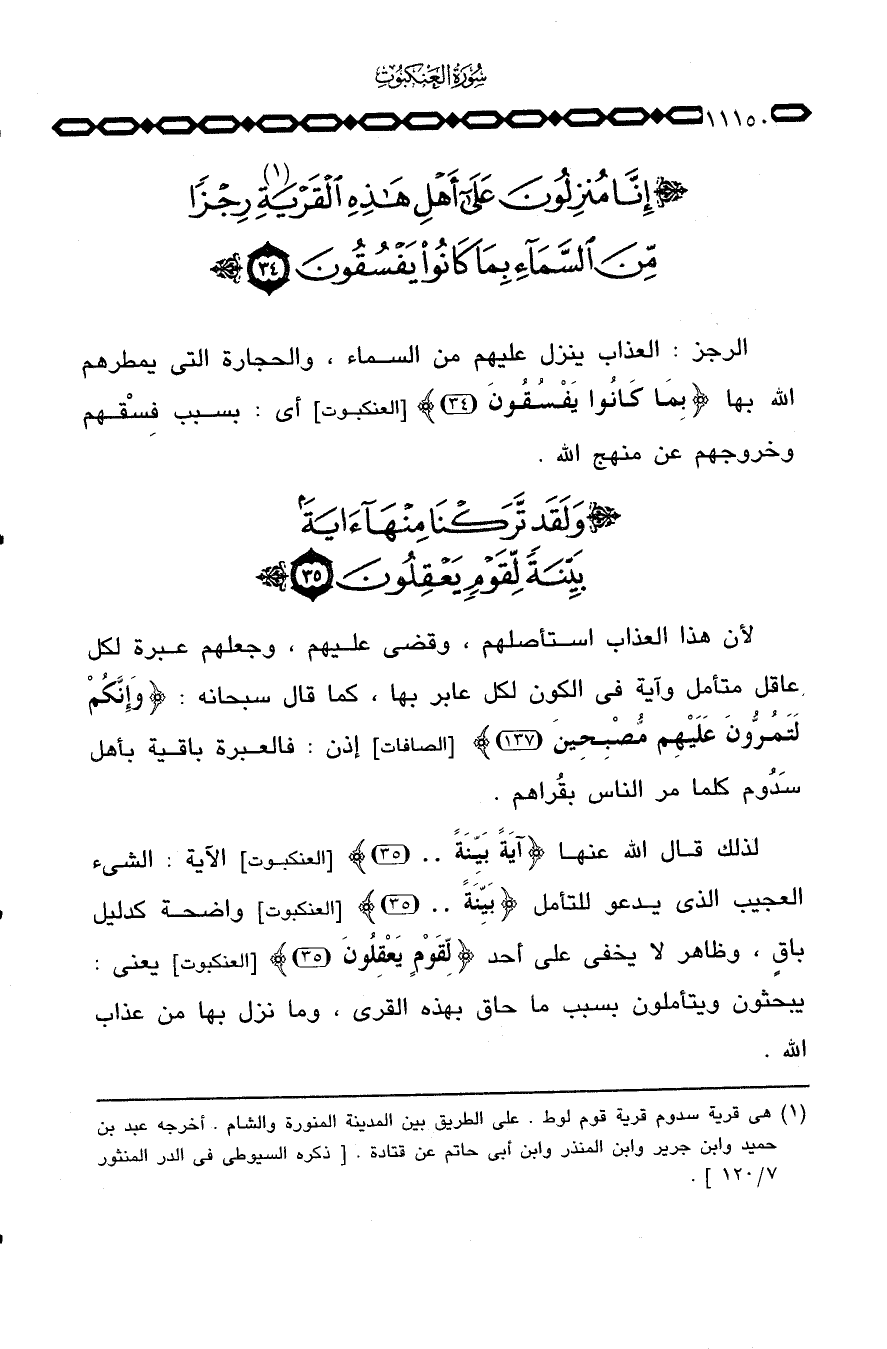 سُورَةُ العَنكَبُوتِ
١١١٥٠
إِنَّا مُنزِلُونَ عَلَىٰٓ أَهْلِ هَـٰذِهِ ٱلْقَرْيَةِ (١) رِجْزًا
مِّنَ ٱلسَّمَآءِ بِمَا كَانُوا۟ يَفْسُقُونَ ٣٤
الرجز : العذاب ينزل عليهم من السماء ، والحجارة التى يمطرهم
الله بها ﴿بِمَا كَانُوا يَفْسُقُونَ (٣٤)﴾ [العنكبوت] أى : بسبب فِسْقهم
وخروجهم عن منهج الله .
وَلَقَد تَّرَكْنَا مِنْهَآ ءَايَةًۢ
بَيِّنَةً لِّقَوْمٍ يَعْقِلُونَ ٣٥
لأن هذا العذاب استأصلهم ، وقضى عليهم ، وجعلهم عبرة لكل
عاقل متأمل وآية فى الكون لكل عابر بها ، كما قال سبحانه : ﴿وَإِنَّكُمْ
لَتَمُرُّونَ عَلَيْهِم مُّصْبِحِينَ (١٣٧)﴾ [الصافات] إذن : فالعبرة باقية بأهل
سَدُوم كلما مر الناس بقُراهم .
لذلك قال الله عنها ﴿آيَةً بَيِّنَةً .. (٣٥)﴾ [العنكبوت] الآية : الشىء
العجيب الذى يدعو للتأمل ﴿بَيِّنَةً .. (٣٥)﴾ [العنكبوت] واضحة كدليل
باقٍ ، وظاهر لا يخفى على أحد ﴿لِّقَوْمٍ يَعْقِلُونَ (٣٥)﴾ [العنكبوت] يعنى :
يبحثون ويتأملون بسبب ما حاق بهذه القرى ، وما نزل بها من عذاب
الله .
(١) هى قرية سدوم قرية قوم لوط . على الطريق بين المدينة المنورة والشام . أخرجه عبد بن
حميد وابن جرير وابن المنذر وابن أبى حاتم عن قتادة . [ ذكره السيوطى فى الدر المنثور
١٢٠/٧ ] .